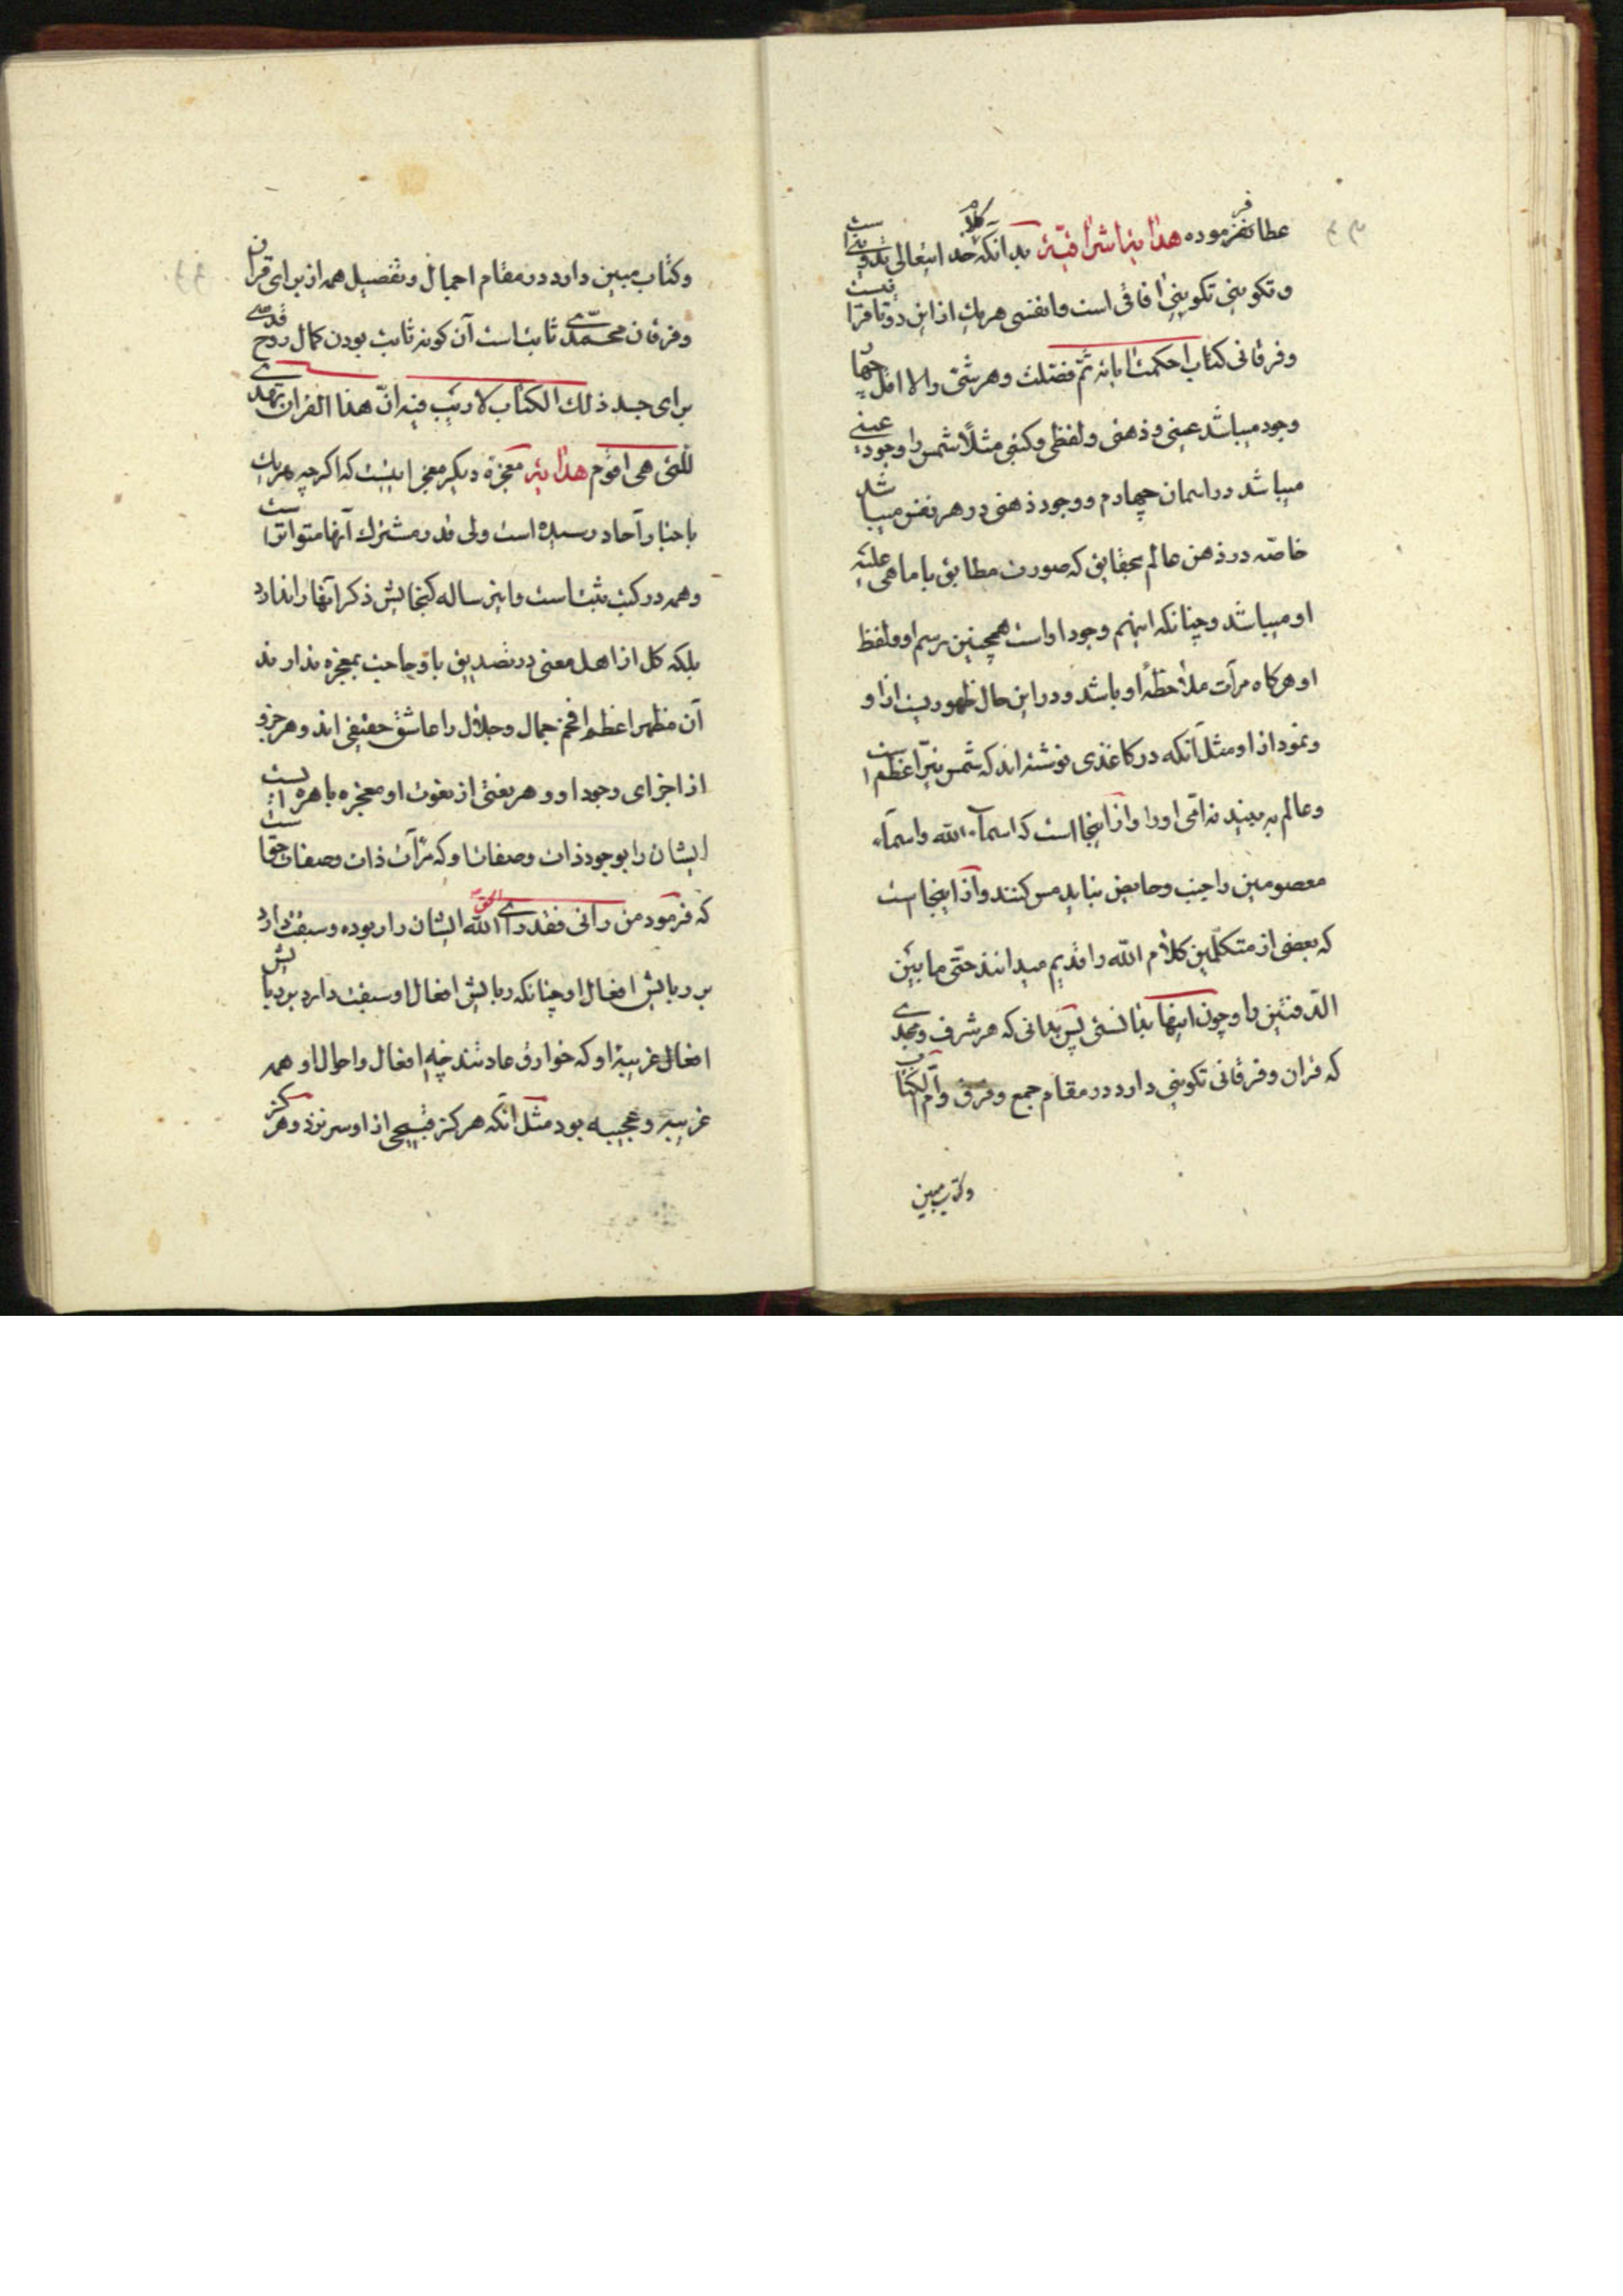 عطا نفرموده هدایة اشراقیّة بدانکه کلام خدایتعالی تدوینی است
و تکوینی تکوینی افاقی است و انفسی هریک از این دو تا قرآنیست
و فرقانی کتاب احکمت ایاته ثمّ فصّلت و هر شئ را لا اقل چهار
وجود میباشد عینی و ذهنی و لفظی و کتبی مثلاً شمس را وجود عینی
میباشد در اسمان چهارم و وجود ذهنی در هر نفس میباشد
خاصّه در ذهن عالم بحقایق که صورت مطابق با ما هی علیه
او میباشد و چنانکه اینهم وجود او است همچنین رسم او و لفظ
او هرکاه مرآت ملاحظهٔ او باشد و در این حال ظهوریست از او
و نمود از او مثل آنکه در کاغذی نوشته‌اند که شمس نیّر اعظم است
و عالم به بیند نه امّی اورا و از اینجا است که اسماء الله و اسماء
معصومین را جنب و حایض نباید مس کنند و از اینجا است
که بعضی از متکلّمین کلام الله را قدیم میدانند حتّی ما بین
الدّفتین را و چون اینها بدانستی پس بدانی که هر شرف و مجدی
که قران و فرقانی تکوینی دارد در مقام جمع و فرق و امّ الکتاب
و کتاب مبین
و کتاب مبین دارد در مقام اجمال و تفصیل همه از برای قران
و فرقان محمّدی ثابت است آن کونه ثابت بودن کمال روح قدسی
برای جسد ذلک الکتاب لا ریب فیه انّ هذا القران یهدی
للّتی هی اقوم هدایة معجزهٔ دیکر معجزاتیست که اکرچه هر یک
باخبار آحاد رسیده است ولی قدر مشترک آنها متواتر است
و همه در کتب مثبت است و این رساله کنجایش ذکر آنها را ندارد
بلکه کل از اهل معنی در تصدیق باو حاجت بمعجزه ندارند
آن مظهر اعظم افخم جمال و جلال را عاشق حقیقی‌اند و هر جزو
از اجزای وجود او و هر نعتی از نعوت او معجزه باهره ایست
ایشان را بوجود ذات و صفات او که مرآت ذات و صفات حق است
که فرمود من رانی فقد رای الحق الله ایشان را ربوده و سبقت دارد
بر ربایش افعال او چنانکه ربایش افعال او سبقت دارد بر ربایش
افعال غریبهٔ او که خوارق عادتند چه افعال و احوال او همه
غریبه و عجیبه بود مثل آنکه هرکز قبیحی از او سر نزد و هرکز